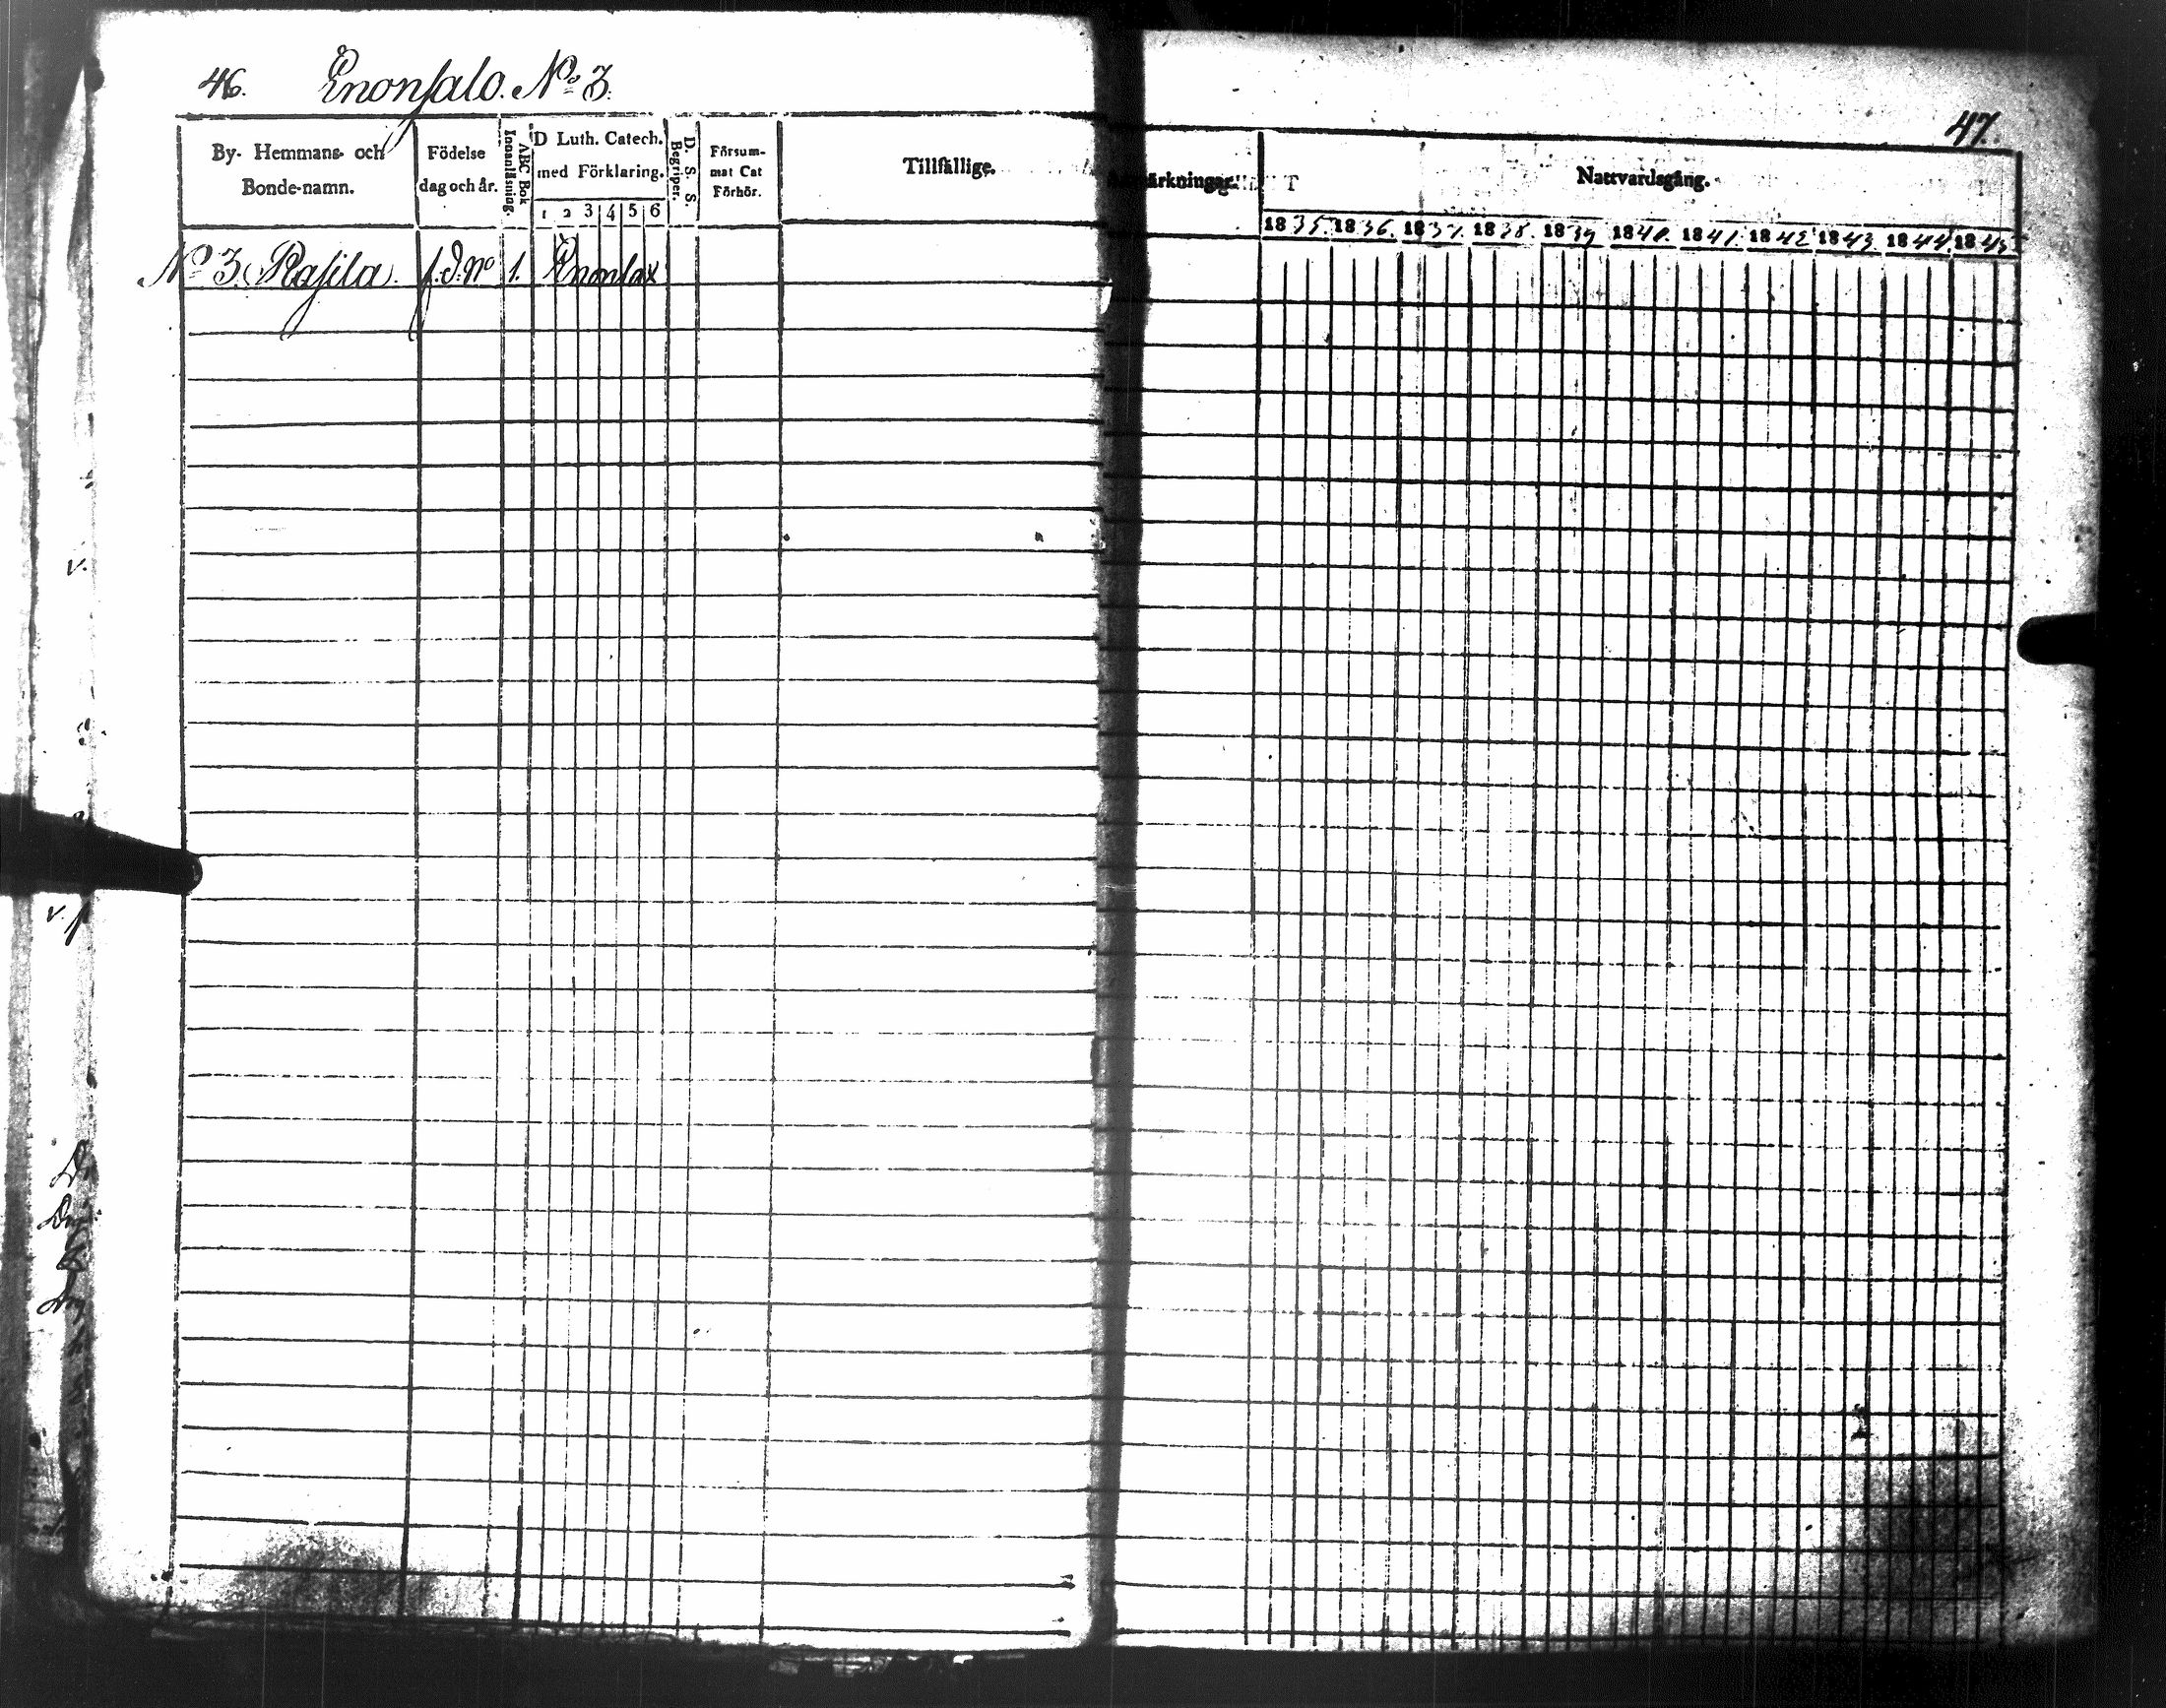 46. Enonsalo. No 3.
47.
By- Hemmans- och
Bonde-namn.
Födelse
dag och år.
Innanläsning.
ABC Bok
D Luth. Catech.
med Förklaring.
1 2 3 4 5 6
D. S. S.
Begriper.
Försum-
mat Cat
Förhör.
Tillfällige.
Nattvardsgång.
1835. 1836. 1837. 1838. 1839 1840. 1841. 1842 1843. 1844. 1845
No 3. Rasila. f. d. No 1. Enonlax